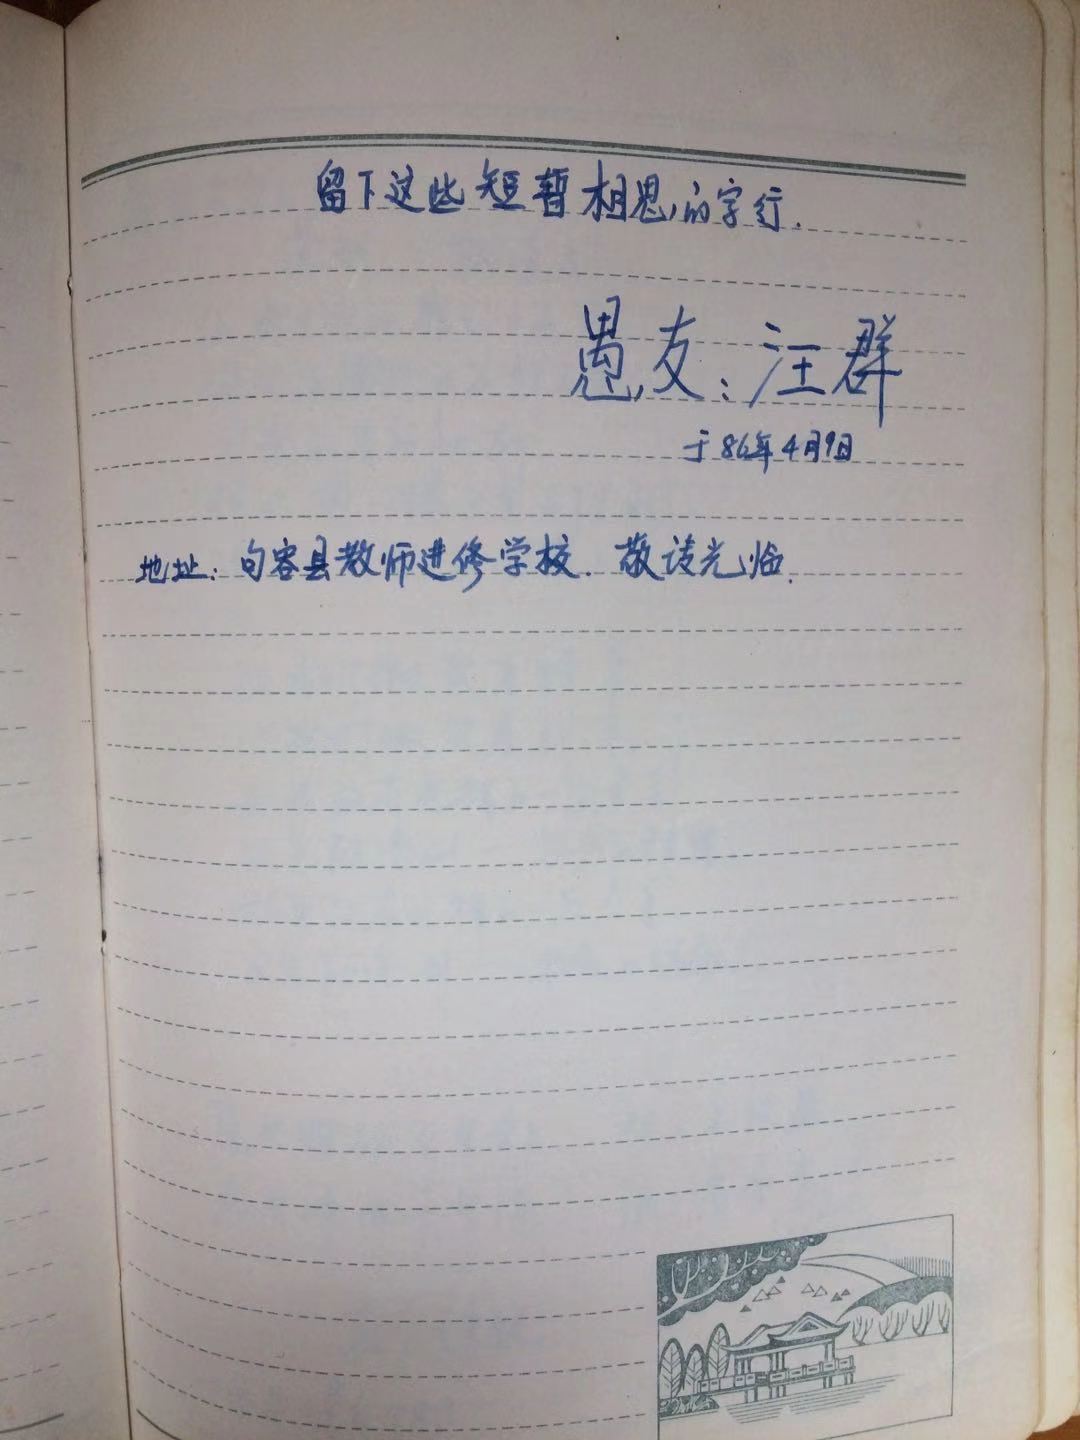 留下这些短暂相思的字行.
愚友：汪群
于86年4月9日
地址：句容县教师进修学校. 敬请光临.